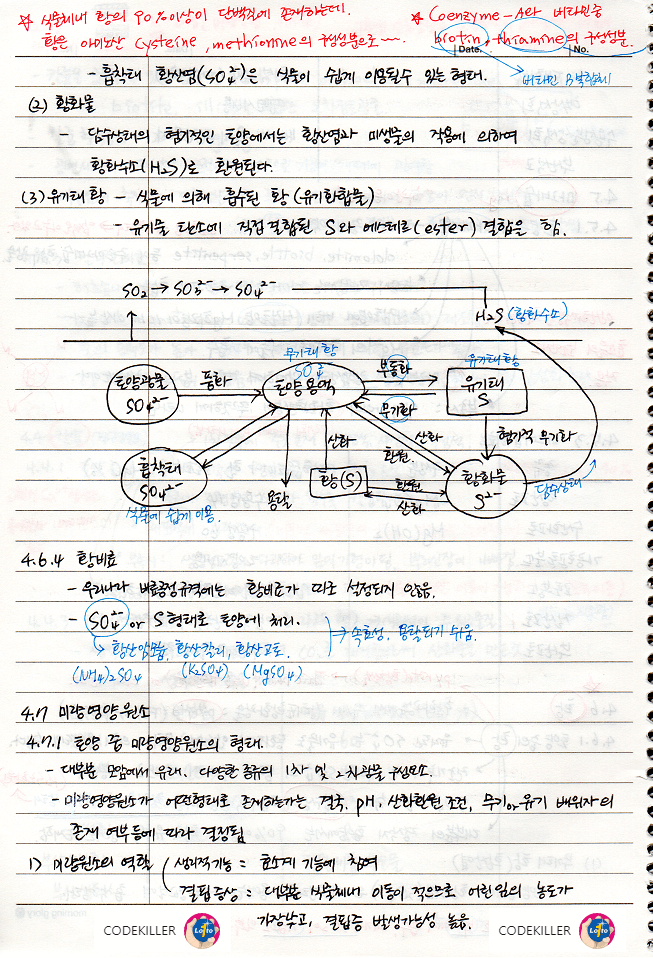 ☆ 식물체내 황의 90%이상이 단백질에 존재하는데.
황은 아미노산 cysteine, methionine의 구성성분으로~~.
☆ Coenzyme-A와 비타민중
biotin, thiamine의 구성성분.
Date. No.
→ 비타민 B복합체
- 흡착태 황산염(SO₄²⁻)은 식물이 쉽게 이용될수 있는 형태.
(2) 황화물
- 담수상태의 혐기적인 토양에서는 황산염과 미생물의 작용에 의하여
황화수소(H₂S)로 환원된다.
(3) 유기태황 - 식물에 의해 흡수된 황 (유기화합물)
- 유기물 탄소에 직접 결합된 S와 에스테르(ester)결합을 함.
SO₂ → SO₃²⁻ → SO₄²⁻
H₂S (황화수소)
토양광물
SO₄²⁻
풍화
무기태 황
SO₄²⁻
토양용액
부동화
무기화
유기태황
유기태
S
흡착태
SO₄²⁻
식물에 쉽게 이용.
용탈
산화
황(S)
산화
환원
환원
산화
혐기적 무기화
황화물
S²⁻
담수상태
4.6.4 황비료
- 우리나라 비료공정규격에는 황비료가 따로 설정되지 않음.
- SO₄²⁻ or S형태로 토양에 처리.
→ 황산암모늄, 황산칼리, 황산고토
(NH₄)₂SO₄ (K₂SO₄) (MgSO₄)
→ 속효성, 용탈되기 쉬움.
4.7 미량영양원소
4.7.1 토양 중 미량영양원소의 형태.
- 대부분 모암에서 유래. 다양한 종류의 1차 및 2차광물 구성요소.
- 미량영양원소가 어떤형태로 존재하는가는 결국, pH, 산화환원 조건, 무기or유기 배위자의
존재 여부등에 따라 결정됨
1) 미량원소의 역할 ( 생리적기능 = 효소계 기능에 참여
결핍증상 = 대부분 식물체내 이동이 적으므로 어린잎의 농도가
가장낮고, 결핍증 발생가능성 높음.
morning glory
CODEKILLER Lotto
CODEKILLER Lotto